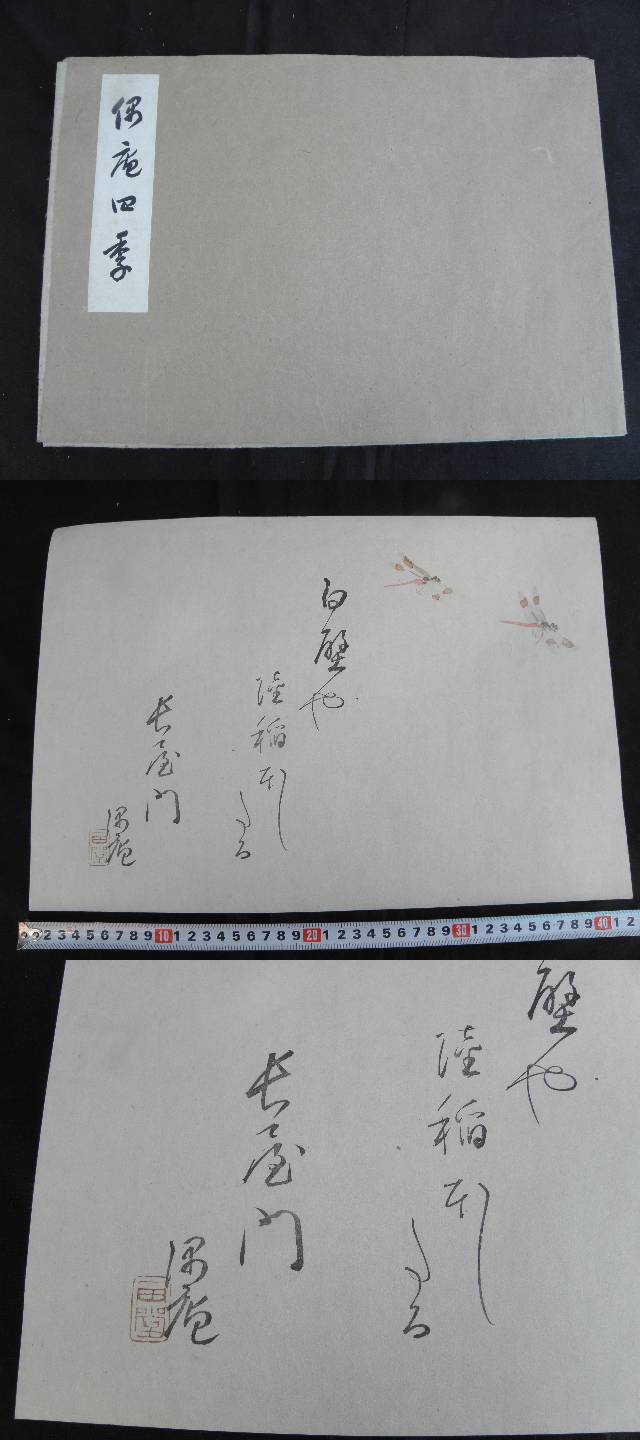 偶庵四季
白壁や
陸稲ほし
たる
長屋門
偶庵
2 3 4 5 6 7 8 9 10 1 2 3 4 5 6 7 8 9 20 1 2 3 4 5 6 7 8 9 30 1 2 3 4 5 6 7 8 9 40 1 2
壁や
陸稲ほし
たる
長屋門
偶庵